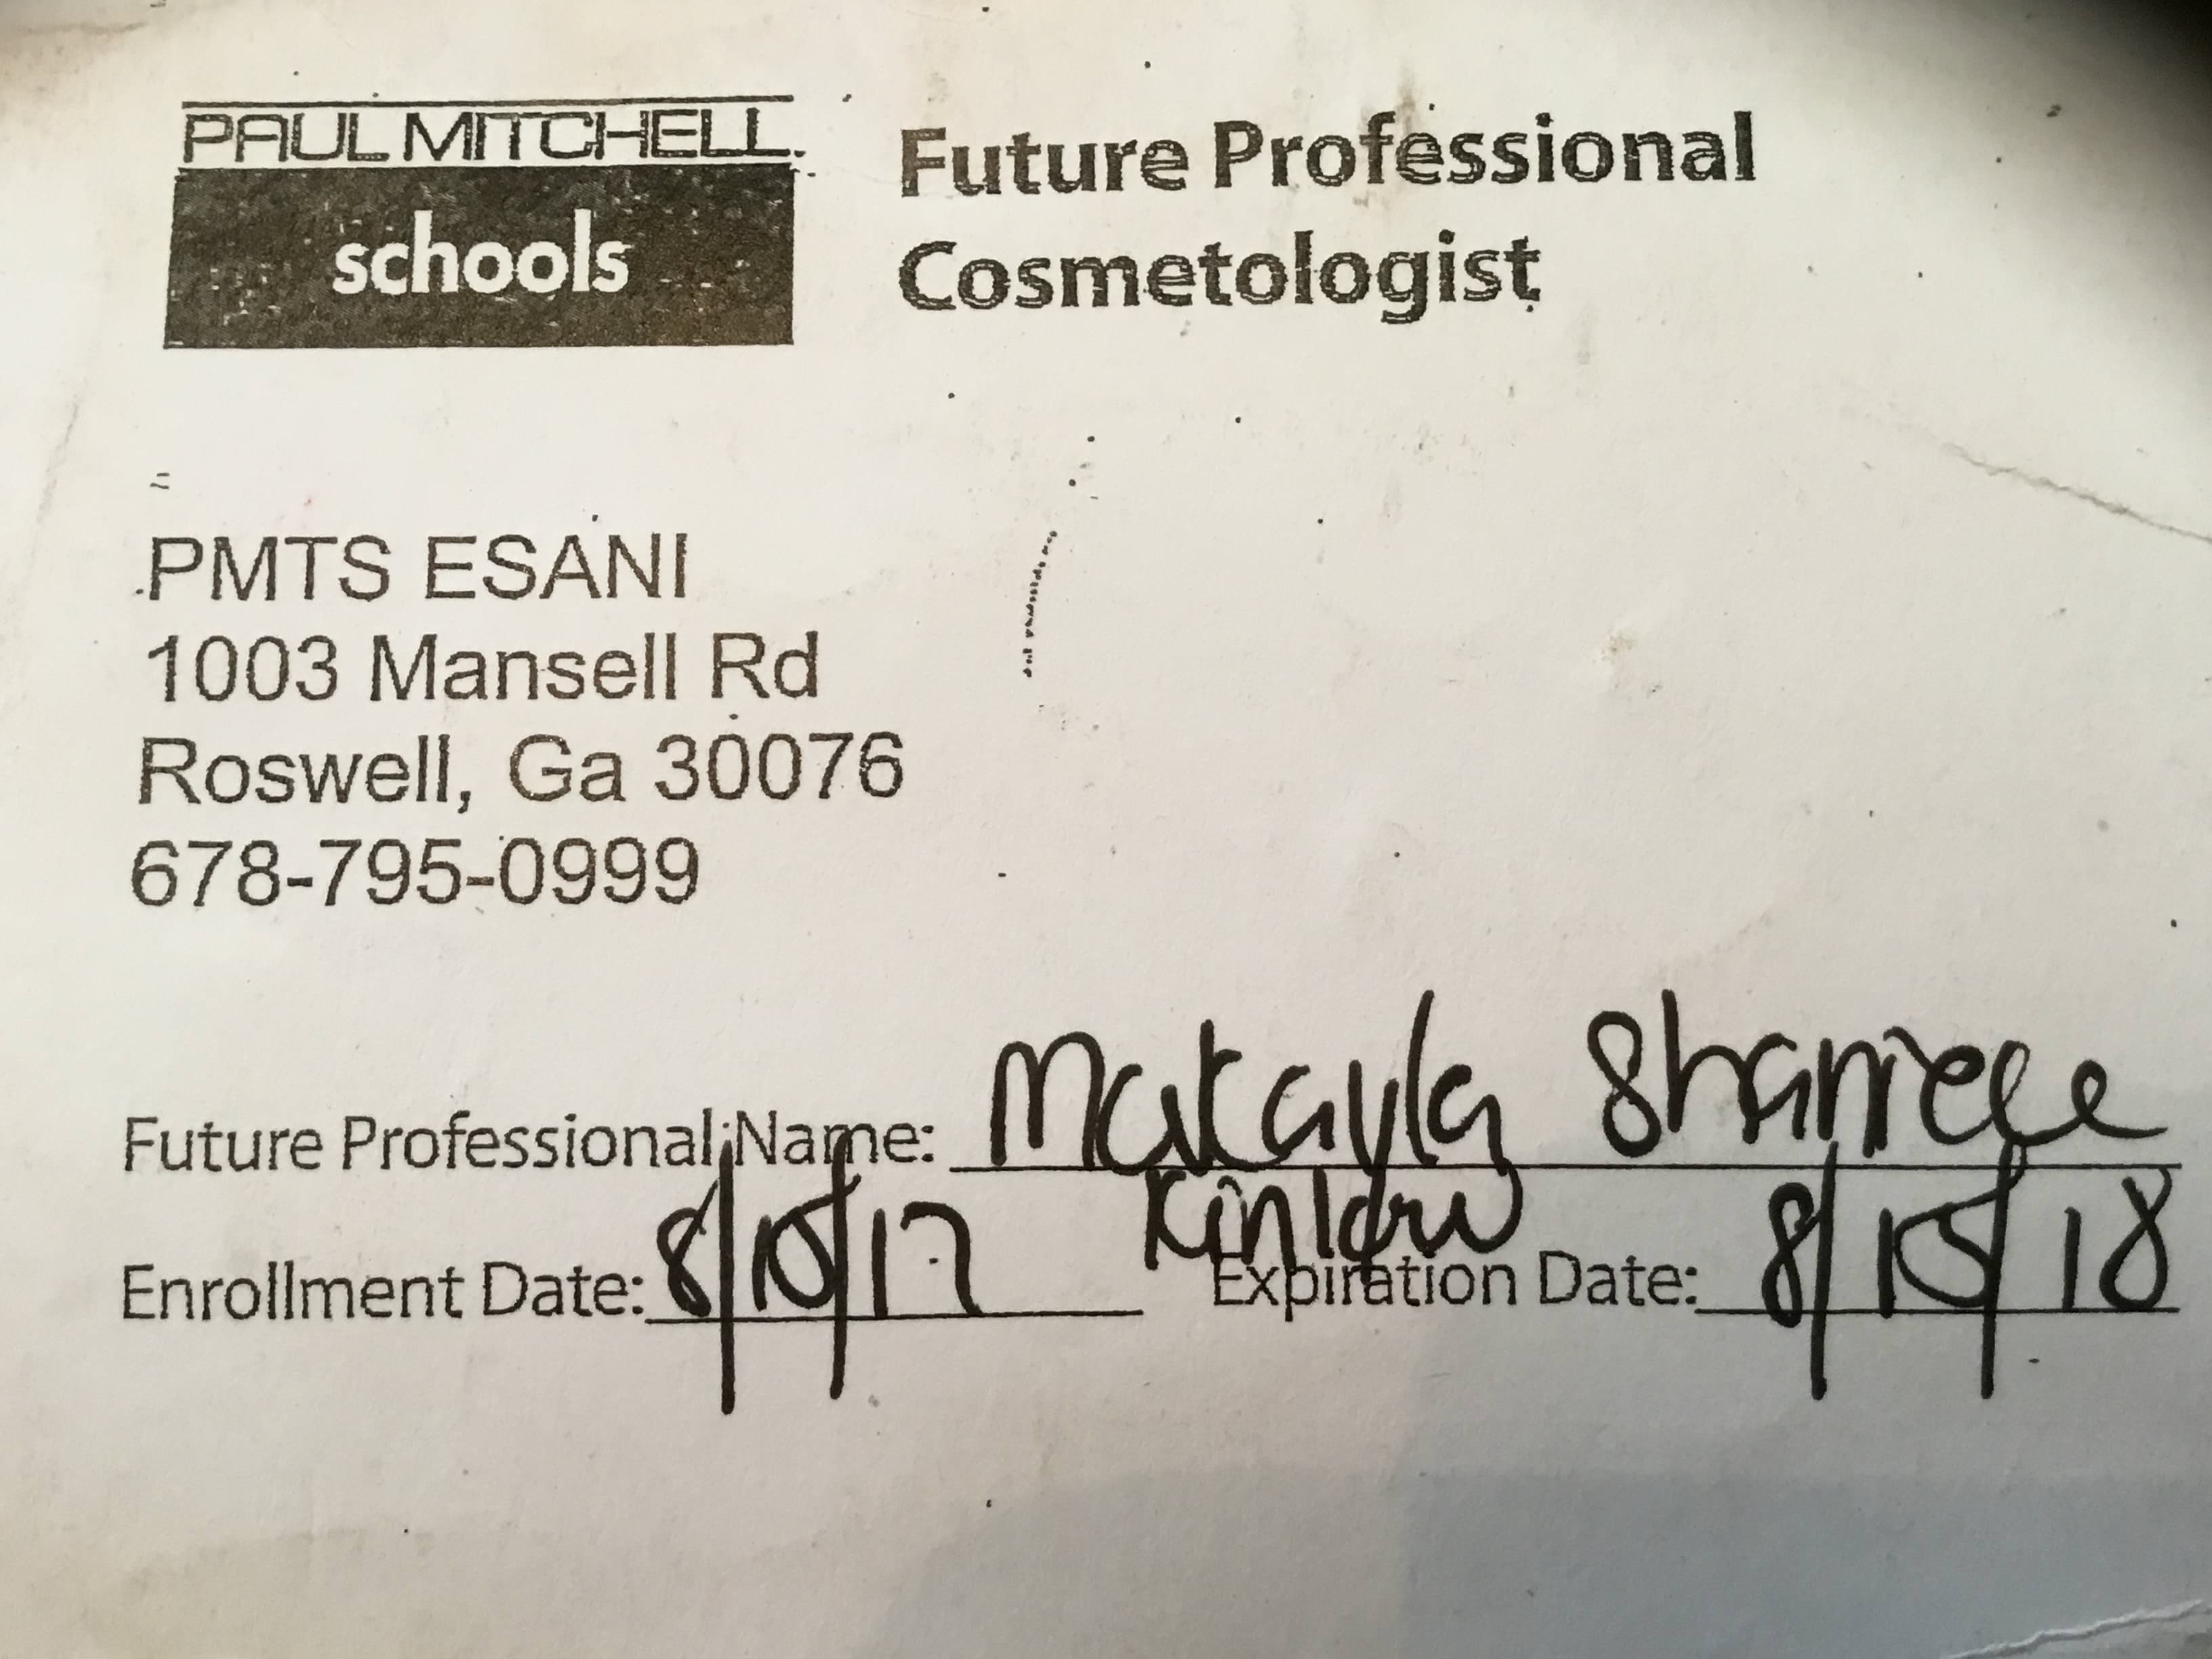 PAUL MITCHELL.
schools
Future Professional
Cosmetologist
PMTS ESANI
1003 Mansell Rd
Roswell, Ga 30076
678-795-0999
Future Professional Name: Makayla Shaniece
Kinlow
Enrollment Date: 8/15/17 Expiration Date: 8/15/18